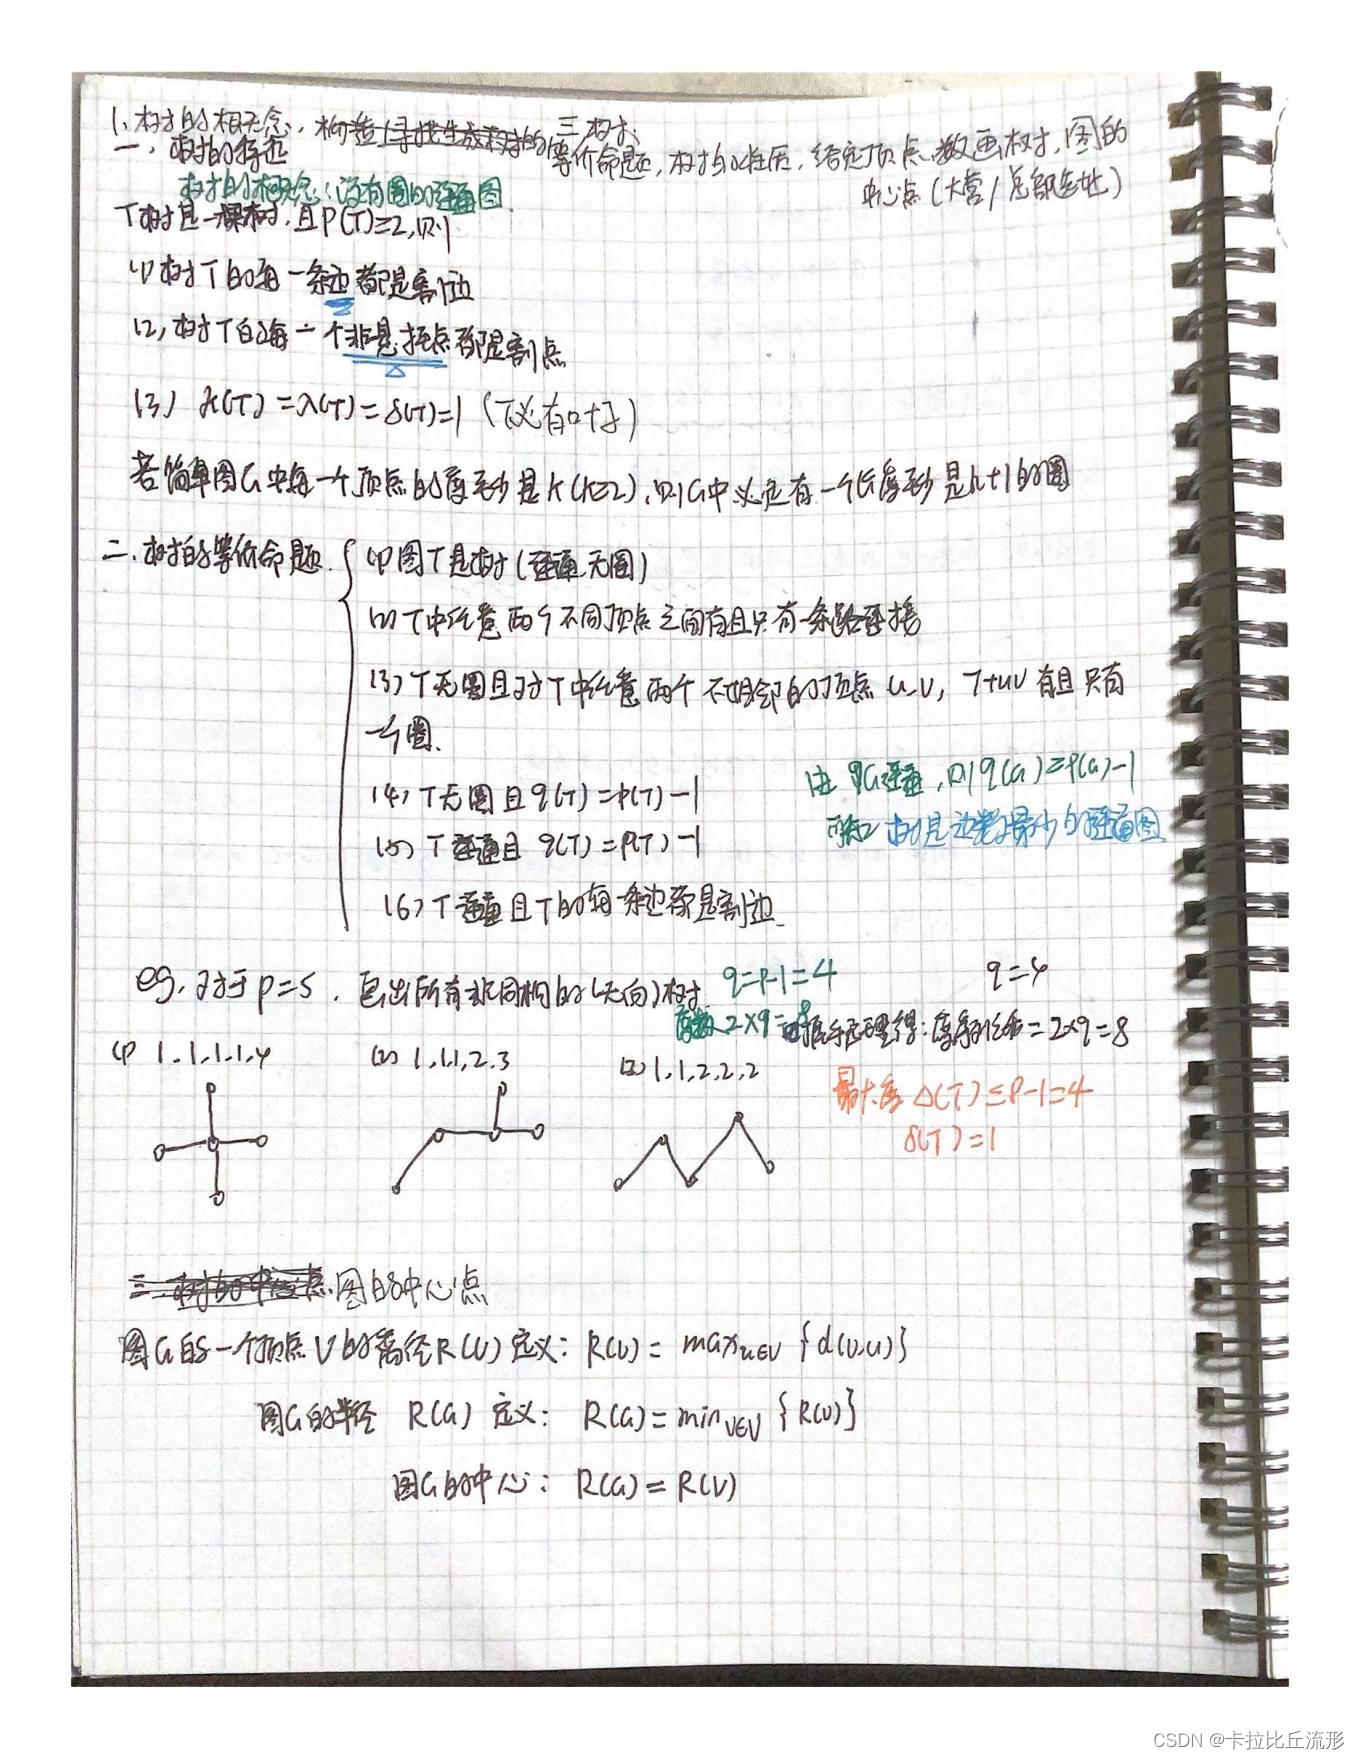 三 树
1、树的相关概念，树的等价命题，树的性质，给定顶点数画树，图的
中心点（大营/总部选址）
一、树的特性
树的概念：没有圈的连通图
T树是一棵树，且P(T)≥2,则
(1)树T的每一条边都是割边
(2)树T的每一个非悬挂点都是割点
(3) κ(T)=λ(T)=δ(T)=1 (T必有叶子)
若简单图G中每一个顶点的度至少是k(k≥2),则G中必定有一个长度至少是k+1的圈
二、树的等价命题
(1)图T是树(连通无圈)
(2)T中任意两个不同顶点之间有且只有一条路连接
(3)T无圈且对T中任意两个不相邻的顶点u,v, T+uv有且只有
一个圈、
(4)T无圈且q(T)=p(T)-1
由 图G连通,则q(G)≥p(G)-1
可知 树是边数最少的连通图
(5)T连通且 q(T)=p(T)-1
(6)T连通且T的每一条边都是割边
eg.对于p=5,画出所有非同构的(无向)树 q=p-1=4
q=4
度数2×q=8 由握手定理得:度序列和=2×q=8
(1) 1.1.1.1.4
(2) 1,1,1,2,3
(3)1,1,2,2,2
最大度 Δ(T)≤p-1=4
δ(T)=1
三、图的中心点
图G的一个顶点V的离径R(V)定义: R(v)=max u∈V {d(v,u)}
图G的半径 R(G) 定义: R(G)=min v∈V {R(v)}
图G的中心: R(G)=R(V)
CSDN @卡拉比丘流形